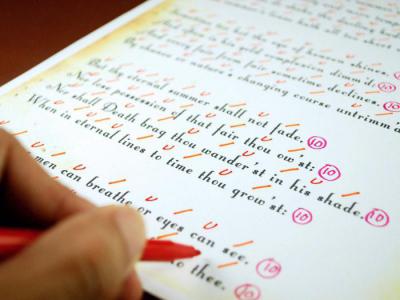 all too short
the eye of heaven shines,
gold complexion dimm'd
fair from fair sometime declines, 10
By chance or nature's changing course untrimm
But thy eternal summer shall not fade, 10
Nor lose possession of that fair thou ow'st: 10
Nor shall Death brag thou wander'st in his shade, 10
When in eternal lines to time thou grow'st: 10
men can breathe or eyes can see. 10
to thee. 10